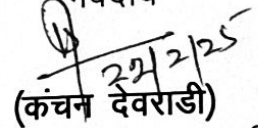 22/2/25
(कंचन देवराडी)